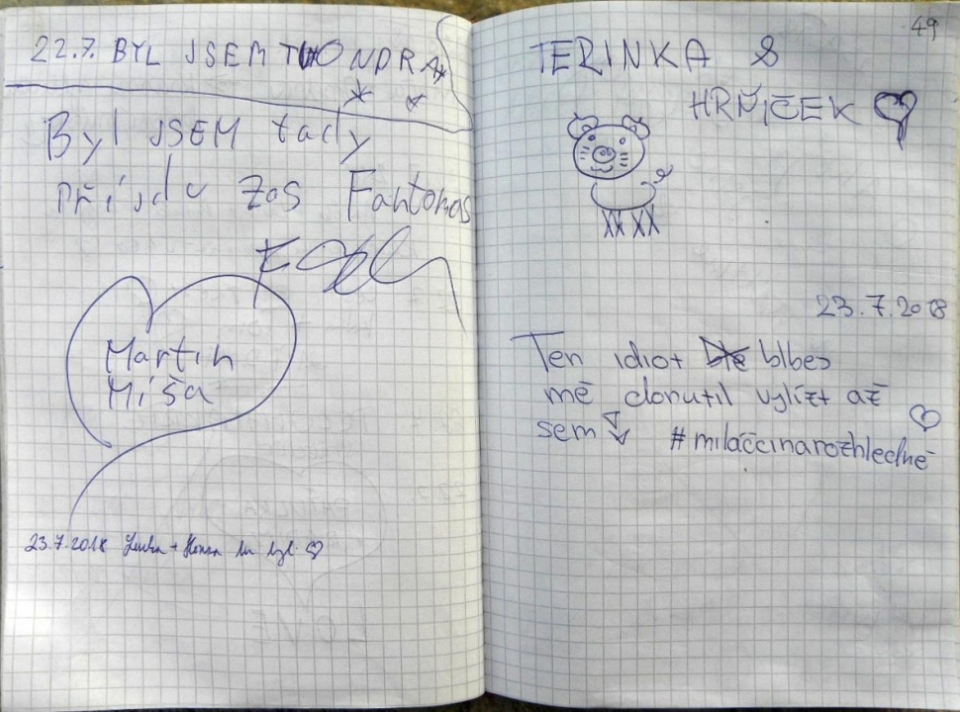 22.7. BYL JSEM TU ONDRA
Byl JSEM tady
Přijdu zas Fantomas
Martin
Míša
23.7.2018 Lenka + Honza tu byli
49
TERINKA &
HRŇÍČEK
23.7.2018
Ten idiot blbec
mě donutil vylízt až
sem
#miláččinarozhledně